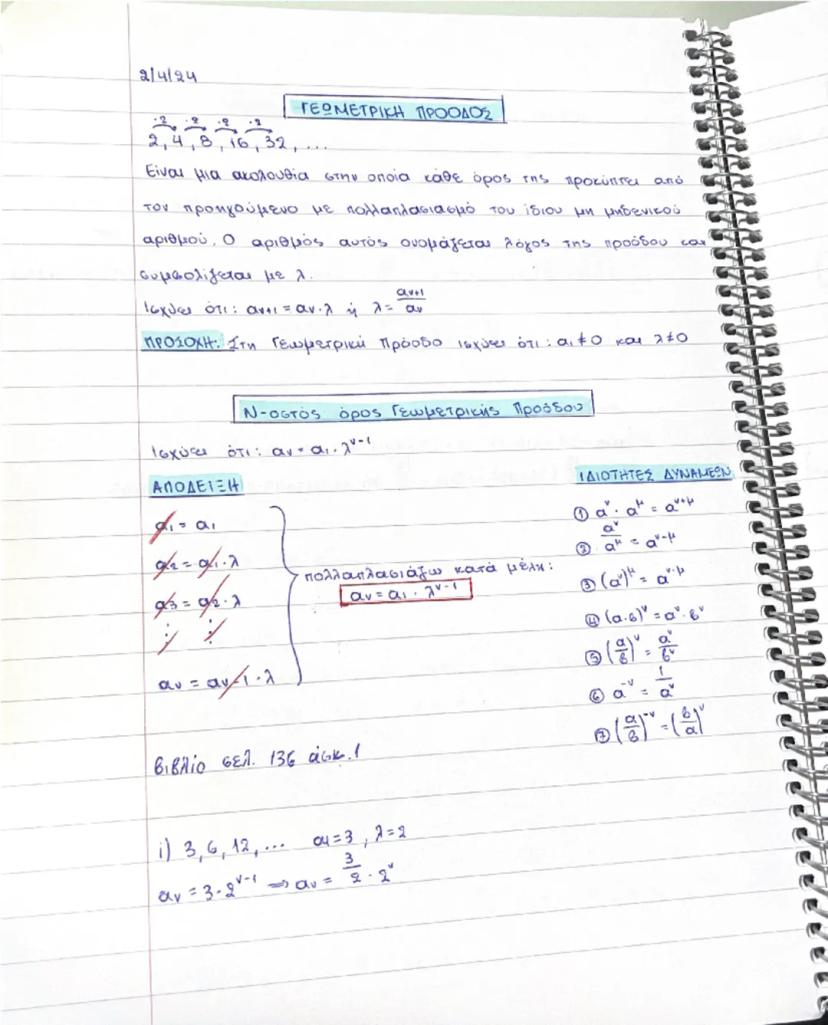 2/4/24
ΓΕΩΜΕΤΡΙΚΗ ΠΡΟΟΔΟΣ
·2 ·2 ·2 ·2
2, 4, 8, 16, 32, ...
Είναι μια ακολουθία στην οποία κάθε όρος της προκύπτει από
τον προηγούμενο με πολλαπλασιασμό του ίδιου μη μηδενικού
αριθμού. Ο αριθμός αυτός ονομάζεται λόγος της προόδου και
συμβολίζεται με λ.
Ισχύει ότι: αν+1 = αν · λ ή λ = αν+1/αν
ΠΡΟΣΟΧΗ: Στη Γεωμετρική Πρόοδο ισχύει ότι: α1 ≠ 0 και λ ≠ 0
Ν-οστός όρος Γεωμετρικής Προόδου
Ισχύει ότι: αν = α1 · λ^ν-1
ΑΠΟΔΕΙΞΗ
α1 = α1
α2 = α1 · λ
α3 = α2 · λ
⋮ ⋮
αν = αν-1 · λ
πολλαπλασιάζω κατά μέλη:
αν = α1 · λ^ν-1
ΙΔΙΟΤΗΤΕΣ ΔΥΝΑΜΕΩΝ
① α^ν · α^μ = α^ν+μ
② α^ν/α^μ = α^ν-μ
③ (α^ν)^μ = α^ν·μ
④ (α·β)^ν = α^ν · β^ν
⑤ (α/β)^ν = α^ν/β^ν
⑥ α^-ν = 1/α^ν
⑦ (α/β)^-ν = (β/α)^ν
βιβλίο σελ. 136 άσκ. 1
i) 3, 6, 12, ... α1 = 3, λ = 2
αν = 3 · 2^ν-1 ⇒ αν = 3/2 · 2^ν